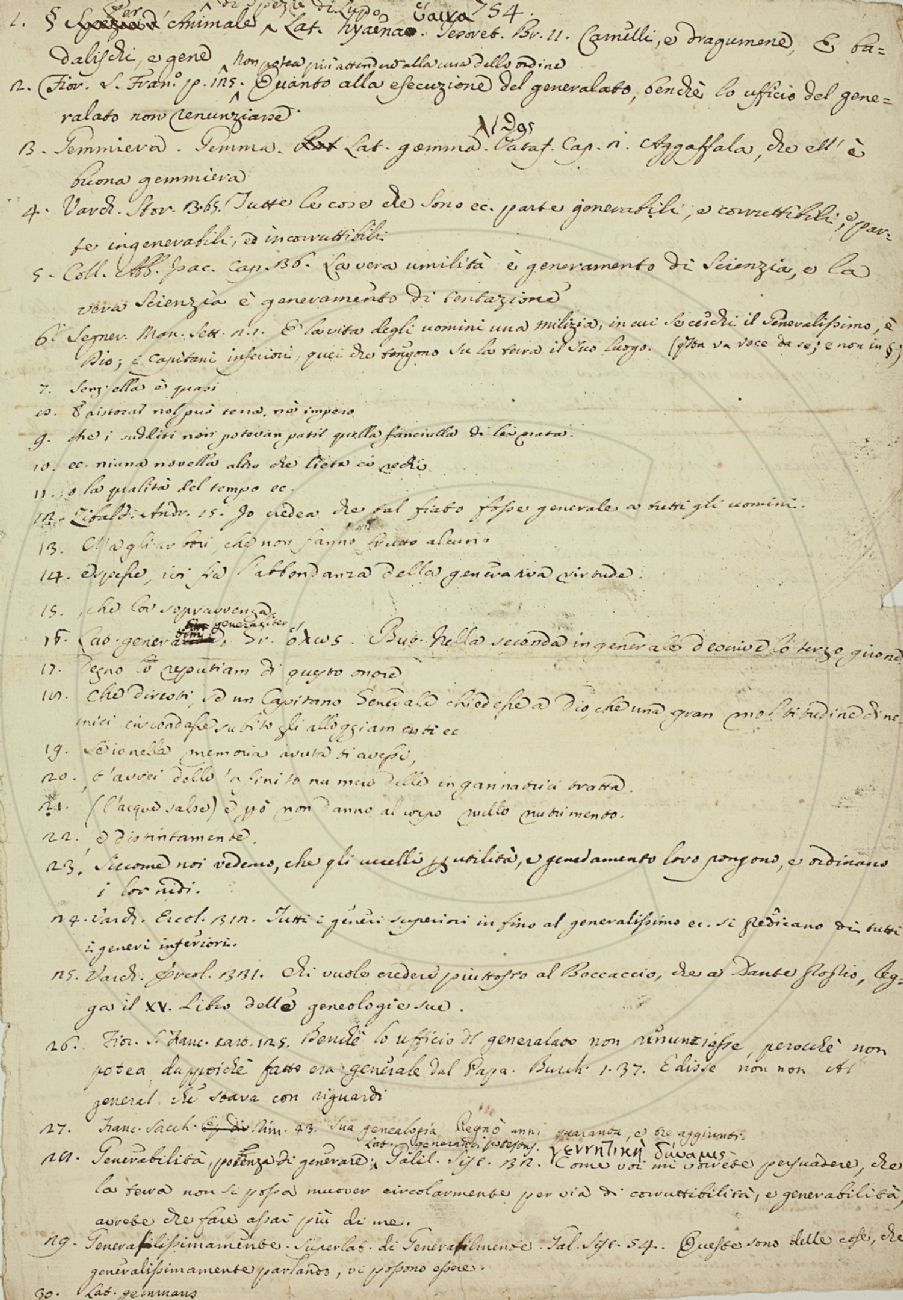 254.
1. § Per Animale di spezie di Lupo Lat. hyaena. Tesoret. Br. 11. Camelli, e dragumene, E ba=
dalischi, e gene
2. Fior. S. Franc. p. 125. Non potea più attendere alla cura dello ordine Quanto alla esecuzione del generalato, benchè lo ufficio del gene=
ralato non renunziasse
3. Gemmiera. Gemma. Lat. gemma. Pataf. Cap. 1. Aggaffala, che ell' è
buona gemmiera
4. Varch. Stor. Tutte le cose che sono ec. parte generabili, e corruttibili, e par=
te ingenerabili, ed incorruttibili
5. Coll. Ab. Isac. Cap. 36. La vera umilità è generamento di scienzia, e la
vera scienzia è generamento di tentazione
6. Segner. Man. Sett. n. 1. È la vita degli uomini una milizia, in cui se cerchi il Generalissimo, è
Dio; e Capitani inferiori, quei che tengono su la terra il suo luogo. (qsta va voce da se, e non in §.)
7. è quasi
nol può terra, nè impero
9. che i sudditi non potevan patir quella fanciulla di lei nata.
10. ec. niuna novella altro che lieta ci rechi
11. o la qualità del tempo ec.
12. Zibald. Andr. 15. Io credea che tal fiato fosse generale a tutti gli uomini.
13. Ma gli arbori, che non fanno frutto alcuno
14. spesse, ivi sia l'abbondanza della generativa virtude.
15. che lor sopravvenga
16. Lat. generatim, generaliter, Gr. ὅλως. But. Nella seconda in generale descrive lo terzo girone
17. degno ti reputiam di questo onore
Che diresti, se un Capitano Generale chiedesse a Dio, che una gran moltitudine di ne=
mici circondasse subito gli alloggiamenti ec
19. Se io nella memoria avuta ti avessi,
20. t'avrei dello 'nfinito numero delle ingannatrici tratta.
21. (l'acque salse) e però non danno al corpo nullo nutrimento.
22. e distintamente.
23. Siccome noi vedemo, che gli uccelli per utilità, e generamento loro pongono, e ordinano
i lor nidi.
24. Varch. Ercol. 312. Tutti i generi superiori in fino al generalissimo ec. si predicano di tutti
i generi inferiori.
25. Varch. Ercol. 331. Chi vuole credere piuttosto al Boccaccio, che a Dante stesso, leg=
ga il XV. Libro delle geneologie sue.
26. Fior. S. Franc. 125. Benchè lo ufficio del generalato non rinunziasse, perocchè non
potea, dappoichè fatto era generale dal Papa. Burch. 1. 37. E disse non non Al
general, che stava con riguardi
27. Franc. Sacch. Rim. 43. Sua genealogia Regnò anni quaranta, e tre aggiunti.
Generabilità, potenza di generare, Lat. generandi potestas, γεννητικὴ δύναμις. Galil. Sist. Come voi mi vorrete persuadere, che
la terra non si possa muover circolarmente per via di corruttibilità, e generabilità,
avrete che fare assai più di me.
29. Generalissimamente. Superlat. di Generalmente. Gal. Sist. 54. Queste sono delle cose, che
generalissimamente parlando, vi possono essere.
30. Lat. gemmans